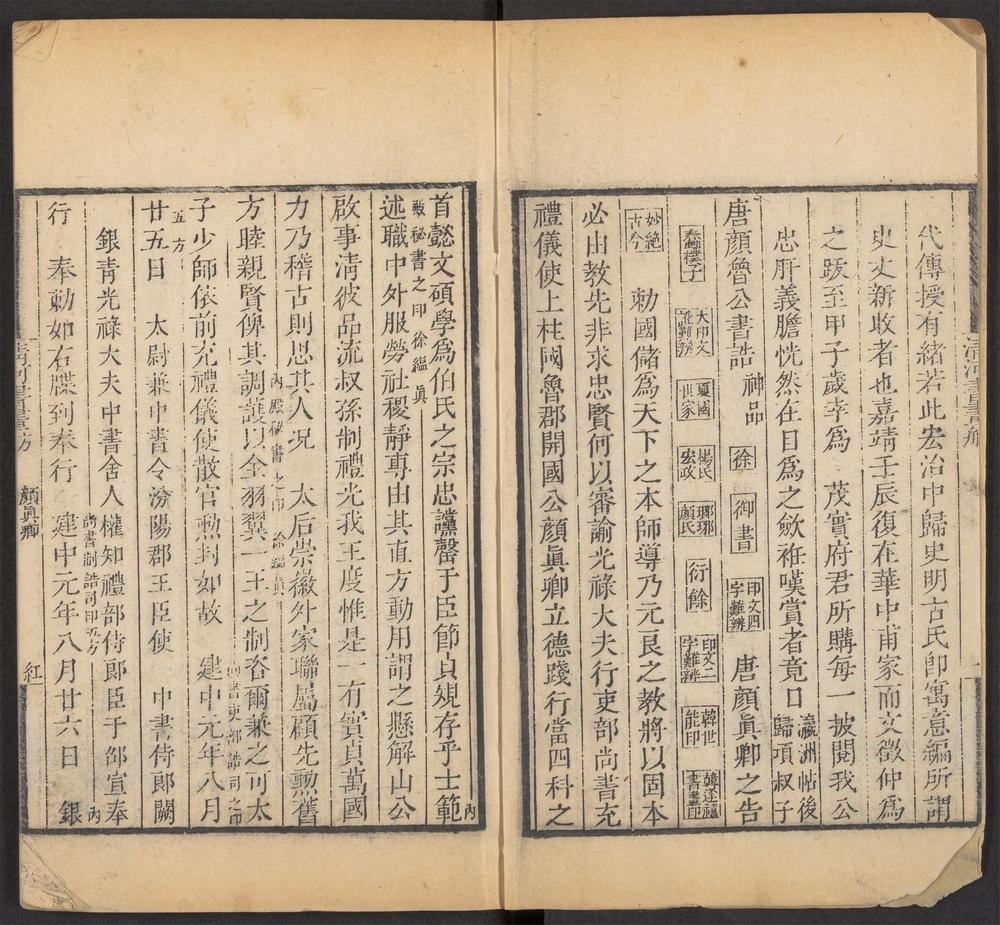 代傳授有緒若此宏治中歸史明古氏卽寓意編所謂
史丈新收者也嘉靖壬辰復在華中甫家而文徵仲爲
之跋至甲子歲幸爲 茂實府君所購每一披閱我公
忠肝義膽恍然在目爲之歛袵嘆賞者竟日 瀛洲帖後歸項叔子
唐顏魯公書誥 神品 徐 御書 印文四字難辨 唐顏眞卿之告
蠢樸子 大印文難辨 夏國世家 楊氏宏政 瑯琊顏氏 衍餘 印文二字難辨 韓世能印 韓逢禧書畫印
妙絕古今 勑國儲爲天下之本師導乃元良之教將以固本
必由教先非求忠賢何以審諭光祿大夫行吏部尚書充
禮儀使上柱國魯郡開國公顏眞卿立德踐行當四科之
清河書畫舫
首懿文碩學爲伯氏之宗忠讜罄于臣節貞規存乎士範 內
殿秘書之印 徐縕眞
述職中外服勞社稷靜專由其直方動用謂之懸解山公
啟事清彼品流叔孫制禮光我王度惟是一有實貞萬國
力乃稽古則思其人况 太后崇徽外家聯屬顧先勳舊
內殿秘書之印 徐縕眞
方睦親賢俾其調護以全羽翼一王之制咨爾兼之可太
子少師依前充禮儀使散官勳封如故 建中元年八月
尚書吏部誥司之印
五方
廿五日 太尉兼中書令汾陽郡王臣使 中書侍郎闕
銀青光祿大夫中書舍人權知禮部侍郎臣于邵宣奉 內
尚書制誥司印五方
行 奉勑如右牒到奉行 建中元年八月廿六日 銀
清河書畫舫 顏眞卿 紅